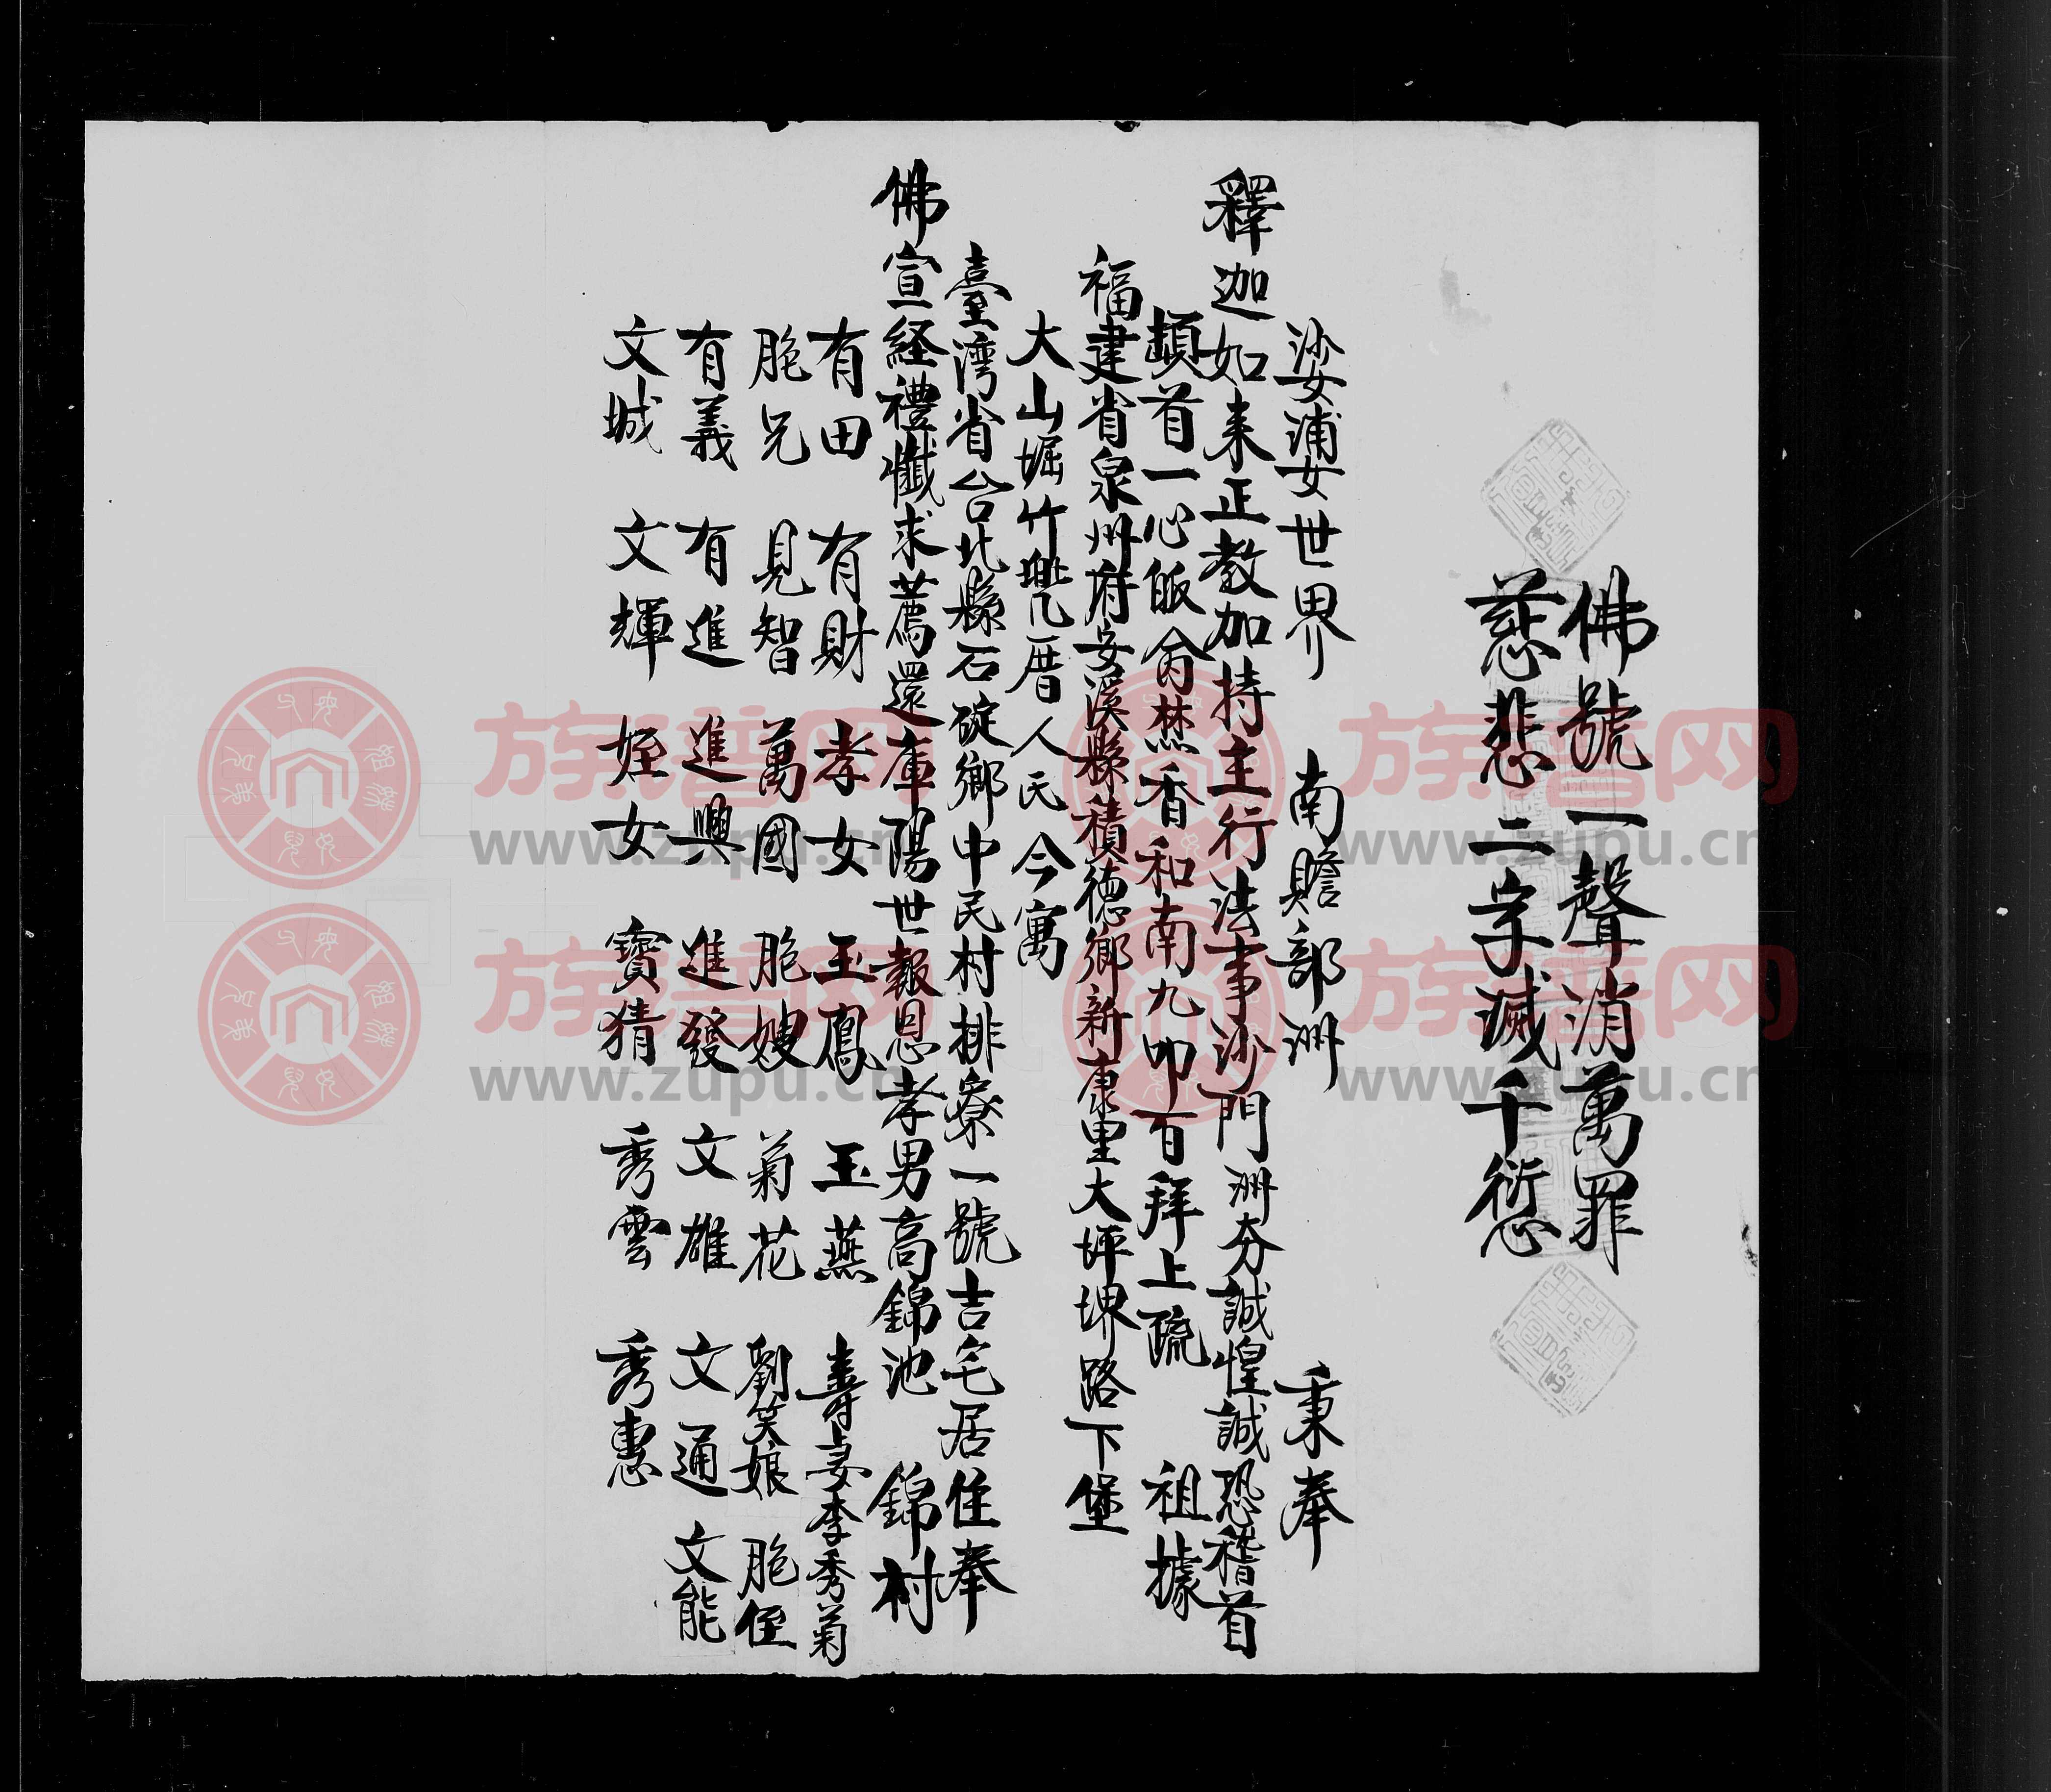 佛號一聲消萬罪
慈悲二字滅千愆
娑婆世界 南贍部洲 秉奉
釋迦如来正教加持主行法事沙門洲夯誠惶誠恐稽首
頓首一心皈命焚香和南九叩百拜上疏 祖據
福建省泉州府安溪縣積德鄉新康里大坪堺路下堡
大山堀竹㙟厝人民今寓
臺湾省台北縣石碇鄉中民村排寮一號吉宅居住奉
佛宣経禮懺求薦還庫陽世報恩孝男高錦池 錦村
有田 有財 孝女 玉鳳 玉燕 壽妾李秀菊
胞兄 見智 萬國 胞嫂 菊花 劉笑娘 胞侄
有義 有進 進興 進發 文雄 文通 文能
文城 文輝 姪女 寶猜 秀雲 秀惠
族譜网
www.zupu.cn
族譜网
www.zupu.cn
族譜网
www.zupu.cn
族譜网
www.zupu.cn